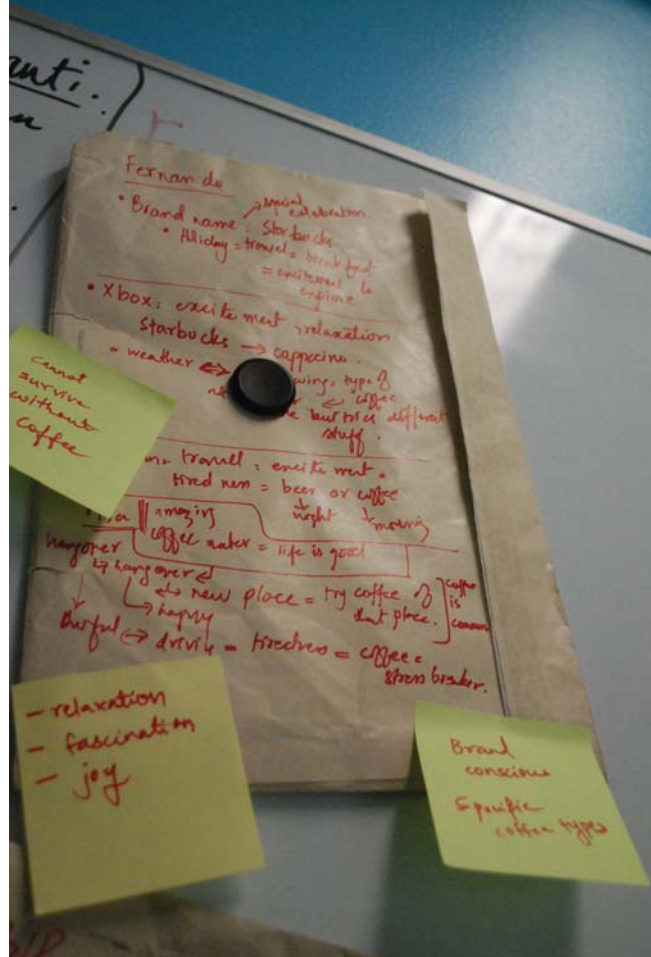 Fernando
special celebration.
• Brand name. Starbucks
• Holiday = travel = breakfast
= excitement to
explore
• Xbox: excitement relaxation
Starbucks → cappecino.
• weather ⇔ type of
coffee
but tries different
stuff.
travell = excitement.
tiredness = beer or coffee
night morning
amazing
coffee maker = life is good
hangover
↳ hangover
new place = try coffee of
that place.
coffee
is
common
↳ happy
driving = tiredness = coffee =
stress breaker.
Cannot
survive
without
coffee
– relaxation
– fascination
– joy
Brand
conscious
Specific
coffee types